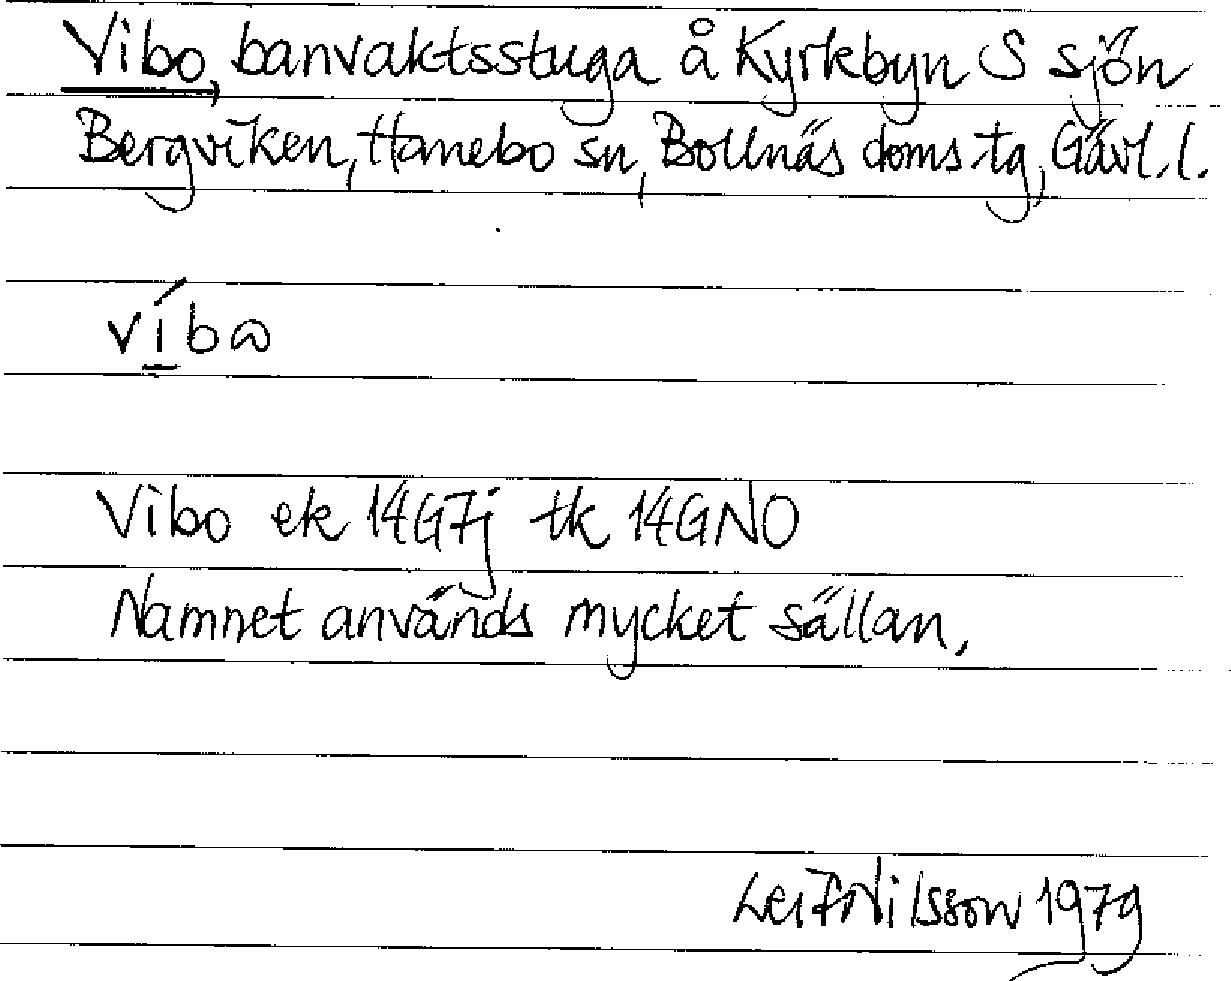 Vibo, banvaktsstuga å Kyrkbyn S sjön
Bergviken, Hanebo sn, Bollnäs doms.tg, Gävl.l.
víbɷ
Vibo ek 14G7j tk 14GNO
Namnet används mycket sällan.
Leif Nilsson 1979